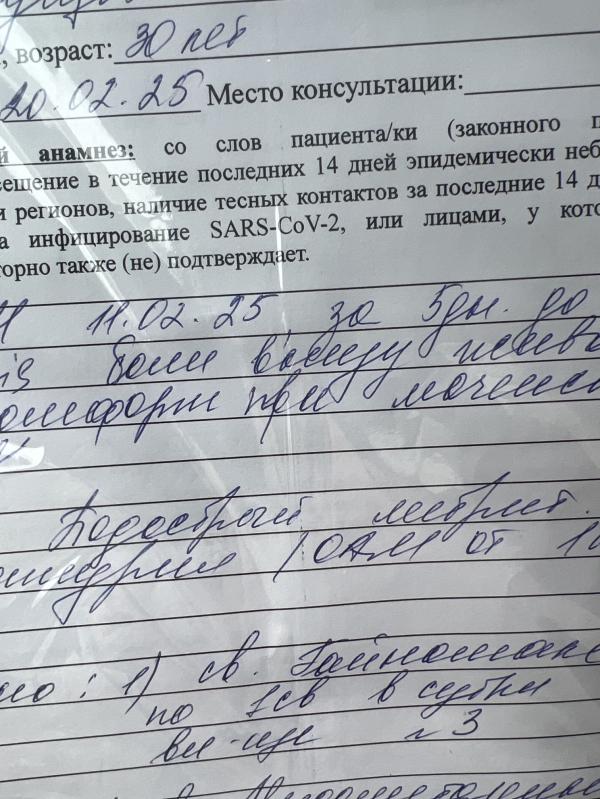 , возраст: 30 лет
20.02.25 Место консультации:
й анамнез: со слов пациента/ки (законного п
сещение в течение последних 14 дней эпидемически неб
и регионов, наличие тесных контактов за последние 14 д
а инфицирование SARS-CoV-2, или лицами, у кото
торно также (не) подтверждает.
11.02.25, за 5дн. до
боли внизу живо
омфорт при мочеис
Подострый метрит.
/ОАМ от 1
но: 1) св. Гайномакс
по 1св в сутки
вл-ще №3